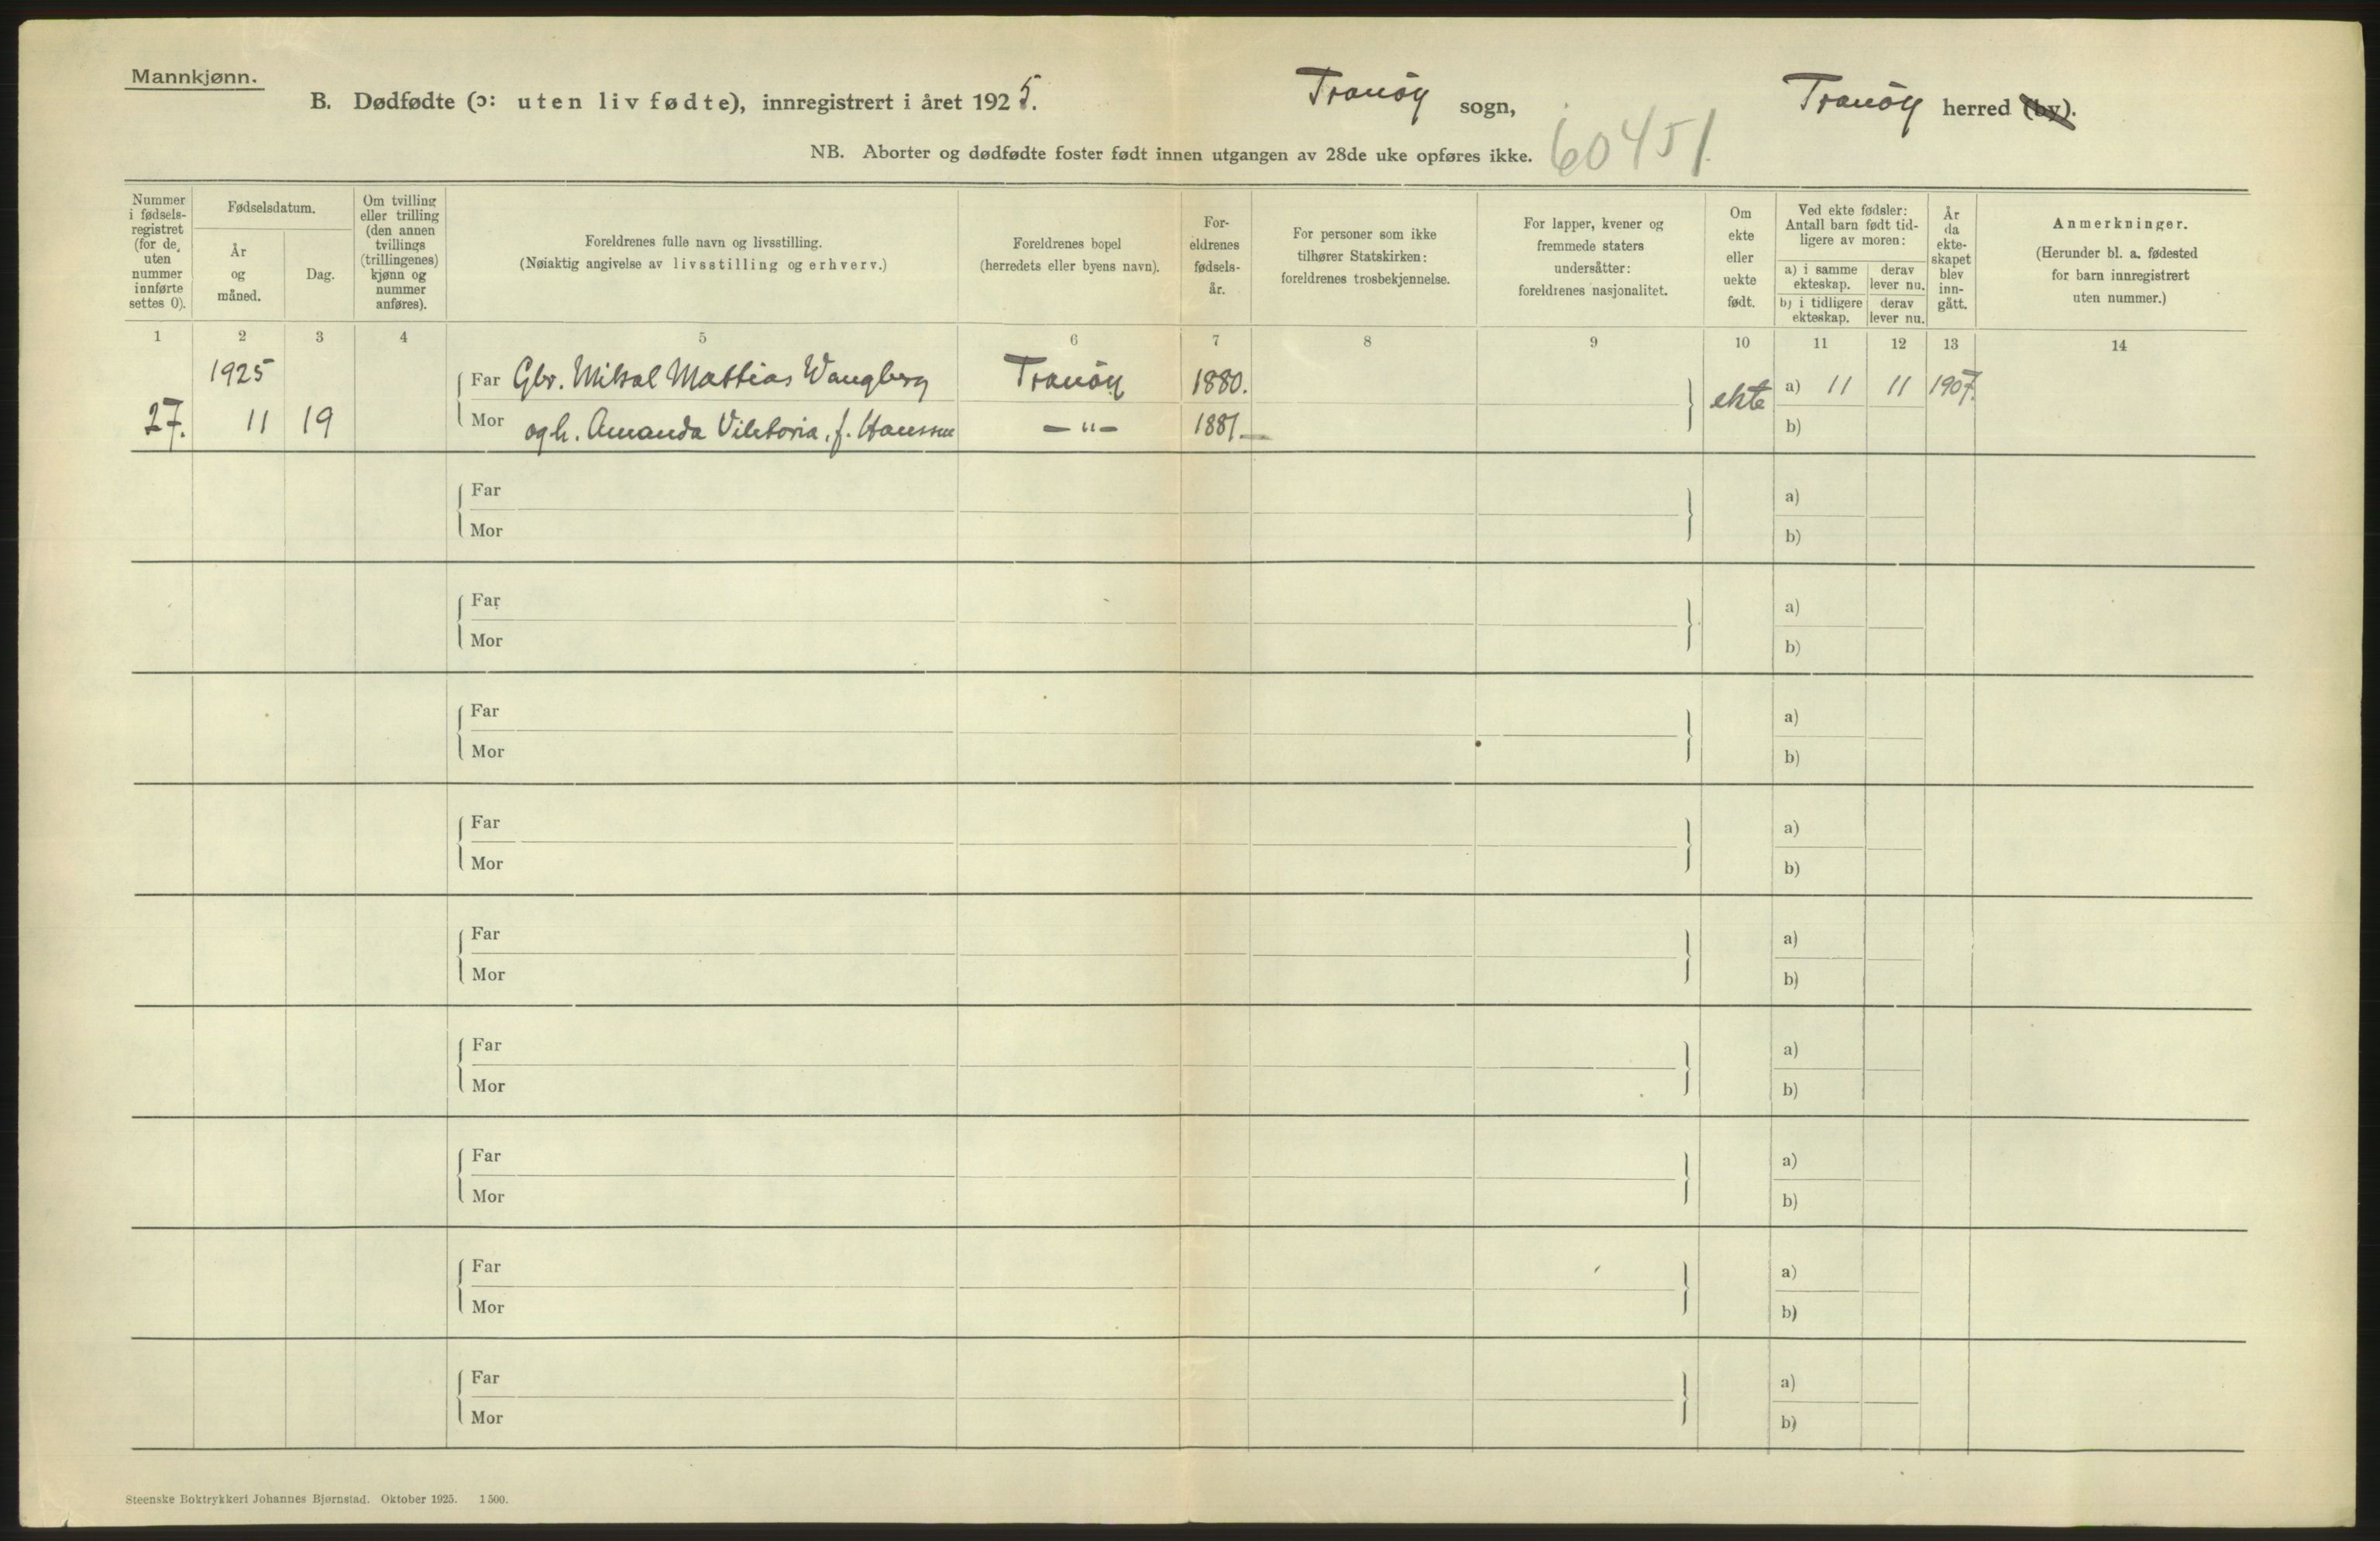 Mannkjønn.
B. Dødfødte (ɔ: uten liv fødte), innregistrert i året 1925. Tranöy sogn, Tranöy herred (by).
NB. Aborter og dødfødte foster født innen utgangen av 28de uke opføres ikke. 60451.
Nummer i fødsels-registret (for de uten nummer innførte settes 0).
Fødselsdatum.
År og måned.
Dag.
Om tvilling eller trilling (den annen tvillings (trillingenes) kjønn og nummer anføres).
Foreldrenes fulle navn og livsstilling.
(Nøiaktig angivelse av livsstilling og erhverv.)
Foreldrenes bopel
(herredets eller byens navn).
For-eldrenes fødsels-år.
For personer som ikke tilhører Statskirken: foreldrenes trosbekjennelse.
For lapper, kvener og fremmede staters undersåtter: foreldrenes nasjonalitet.
Om ekte eller uekte født.
Ved ekte fødsler: Antall barn født tid-ligere av moren:
a) i samme ekteskap. derav lever nu.
b) i tidligere ekteskap. derav lever nu.
År da ekte-skapet blev inn-gått.
Anmerkninger.
(Herunder bl. a. fødested for barn innregistrert uten nummer.)
1 2 3 4 5 6 7 8 9 10 11 12 13 14
1925 Far Gbr. Mikal Mattias Wangberg Tranöy 1880. ekte a) 11 11 1907.
27. 11 19 Mor og h. Amanda Viktoria, f. Hanssen — " — 1881 b)
Far a)
Mor b)
Far a)
Mor b)
Far a)
Mor b)
Far a)
Mor b)
Far a)
Mor b)
Far a)
Mor b)
Far a)
Mor b)
Far a)
Mor b)
Far a)
Mor b)
Steenske Boktrykkeri Johannes Bjørnstad. Oktober 1925. 1500.